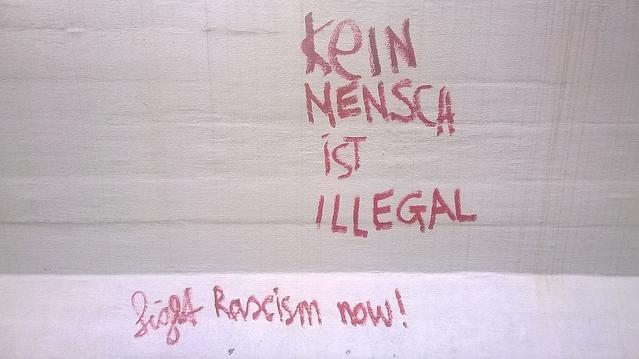 KeIN
MENSCH
iST
ILLEGAL
Fight Rascism now!